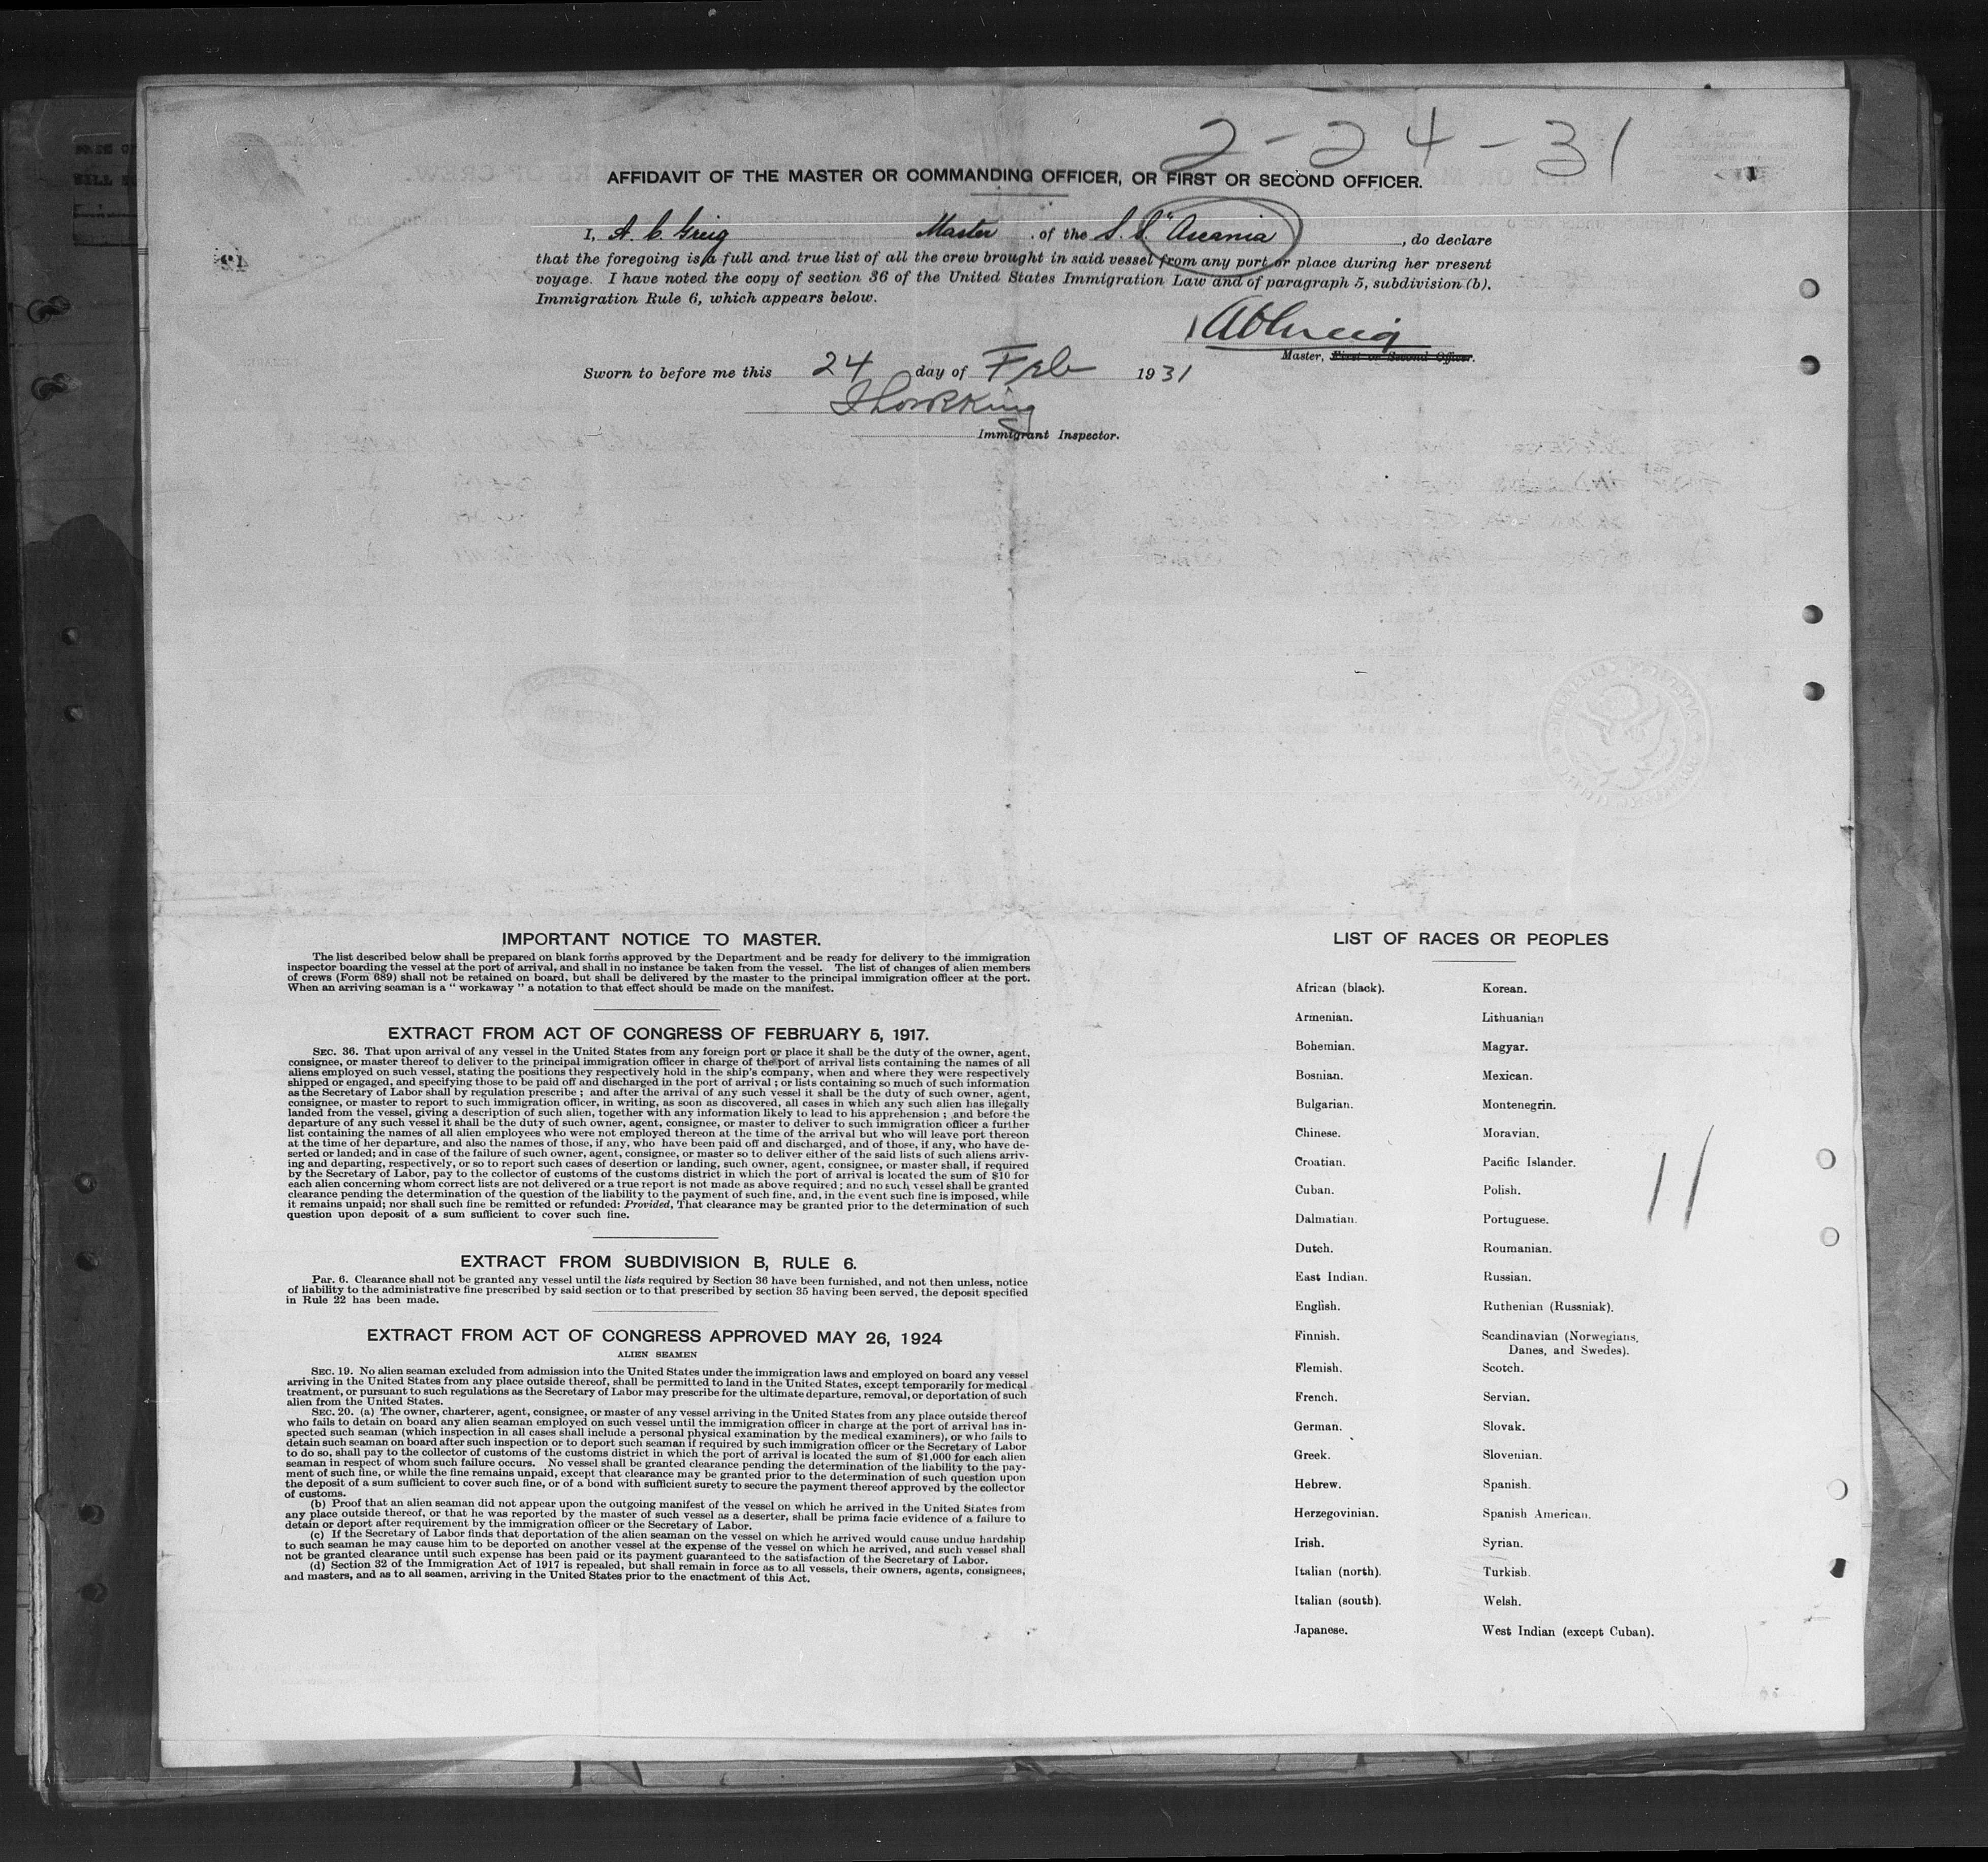 2-24-31
AFFIDAVIT OF THE MASTER OR COMMANDING OFFICER, OR FIRST OR SECOND OFFICER.
I, A. C. Greig Master of the S. S. "Ascania", do declare
that the foregoing is a full and true list of all the crew brought in said vessel from any port or place during her present
voyage. I have noted the copy of section 36 of the United States Immigration Law and of paragraph 5, subdivision (b),
Immigration Rule 6, which appears below.
Master, First or Second Officer.
Sworn to before me this 24 day of Feb 1931
Immigrant Inspector.
IMPORTANT NOTICE TO MASTER.
The list described below shall be prepared on blank forms approved by the Department and be ready for delivery to the immigration
inspector boarding the vessel at the port of arrival, and shall in no instance be taken from the vessel. The list of changes of alien members
of crews (Form 689) shall not be retained on board, but shall be delivered by the master to the principal immigration officer at the port.
When an arriving seaman is a " workaway " a notation to that effect should be made on the manifest.
EXTRACT FROM ACT OF CONGRESS OF FEBRUARY 5, 1917.
SEC. 36. That upon arrival of any vessel in the United States from any foreign port or place it shall be the duty of the owner, agent,
consignee, or master thereof to deliver to the principal immigration officer in charge of the port of arrival lists containing the names of all
aliens employed on such vessel, stating the positions they respectively hold in the ship's company, when and where they were respectively
shipped or engaged, and specifying those to be paid off and discharged in the port of arrival ; or lists containing so much of such information
as the Secretary of Labor shall by regulation prescribe ; and after the arrival of any such vessel it shall be the duty of such owner, agent,
consignee, or master to report to such immigration officer, in writing, as soon as discovered, all cases in which any such alien has illegally
landed from the vessel, giving a description of such alien, together with any information likely to lead to his apprehension ; and before the
departure of any such vessel it shall be the duty of such owner, agent, consignee, or master to deliver to such immigration officer a further
list containing the names of all alien employees who were not employed thereon at the time of the arrival but who will leave port thereon
at the time of her departure, and also the names of those, if any, who have been paid off and discharged, and of those, if any, who have de-
serted or landed; and in case of the failure of such owner, agent, consignee, or master so to deliver either of the said lists of such aliens arriv-
ing and departing, respectively, or so to report such cases of desertion or landing, such owner, agent, consignee, or master shall, if required
by the Secretary of Labor, pay to the collector of customs of the customs district in which the port of arrival is located the sum of $10 for
each alien concerning whom correct lists are not delivered or a true report is not made as above required ; and no such vessel shall be granted
clearance pending the determination of the question of the liability to the payment of such fine, and, in the event such fine is imposed, while
it remains unpaid; nor shall such fine be remitted or refunded: Provided, That clearance may be granted prior to the determination of such
question upon deposit of a sum sufficient to cover such fine.
EXTRACT FROM SUBDIVISION B, RULE 6.
Par. 6. Clearance shall not be granted any vessel until the lists required by Section 36 have been furnished, and not then unless, notice
of liability to the administrative fine prescribed by said section or to that prescribed by section 35 having been served, the deposit specified
in Rule 22 has been made.
EXTRACT FROM ACT OF CONGRESS APPROVED MAY 26, 1924
ALIEN SEAMEN
SEC. 19. No alien seaman excluded from admission into the United States under the immigration laws and employed on board any vessel
arriving in the United States from any place outside thereof, shall be permitted to land in the United States, except temporarily for medical
treatment, or pursuant to such regulations as the Secretary of Labor may prescribe for the ultimate departure, removal, or deportation of such
alien from the United States.
SEC. 20. (a) The owner, charterer, agent, consignee, or master of any vessel arriving in the United States from any place outside thereof
who fails to detain on board any alien seaman employed on such vessel until the immigration officer in charge at the port of arrival has in-
spected such seaman (which inspection in all cases shall include a personal physical examination by the medical examiners), or who fails to
detain such seaman on board after such inspection or to deport such seaman if required by such immigration officer or the Secretary of Labor
to do so, shall pay to the collector of customs of the customs district in which the port of arrival is located the sum of $1,000 for each alien
seaman in respect of whom such failure occurs. No vessel shall be granted clearance pending the determination of the liability to the pay-
ment of such fine, or while the fine remains unpaid, except that clearance may be granted prior to the determination of such question upon
the deposit of a sum sufficient to cover such fine, or of a bond with sufficient surety to secure the payment thereof approved by the collector
of customs.
(b) Proof that an alien seaman did not appear upon the outgoing manifest of the vessel on which he arrived in the United States from
any place outside thereof, or that he was reported by the master of such vessel as a deserter, shall be prima facie evidence of a failure to
detain or deport after requirement by the immigration officer or the Secretary of Labor.
(c) If the Secretary of Labor finds that deportation of the alien seaman on the vessel on which he arrived would cause undue hardship
to such seaman he may cause him to be deported on another vessel at the expense of the vessel on which he arrived, and such vessel shall
not be granted clearance until such expense has been paid or its payment guaranteed to the satisfaction of the Secretary of Labor.
(d) Section 32 of the Immigration Act of 1917 is repealed, but shall remain in force as to all vessels, their owners, agents, consignees,
and masters, and as to all seamen, arriving in the United States prior to the enactment of this Act.
LIST OF RACES OR PEOPLES
African (black). Korean.
Armenian. Lithuanian
Bohemian. Magyar.
Bosnian. Mexican.
Bulgarian. Montenegrin.
Chinese. Moravian.
Croatian. Pacific Islander.
Cuban. Polish.
Dalmatian. Portuguese.
Dutch. Roumanian.
East Indian. Russian.
English. Ruthenian (Russniak).
Finnish. Scandinavian (Norwegians,
Danes, and Swedes).
Flemish. Scotch.
French. Servian.
German. Slovak.
Greek. Slovenian.
Hebrew. Spanish.
Herzegovinian. Spanish American.
Irish. Syrian.
Italian (north). Turkish.
Italian (south). Welsh.
Japanese. West Indian (except Cuban).
11